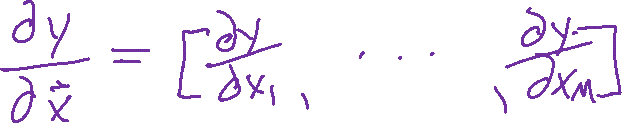 ∂y/∂x⃗ = [∂y/∂x₁, · · · · · , ∂y/∂xₘ]